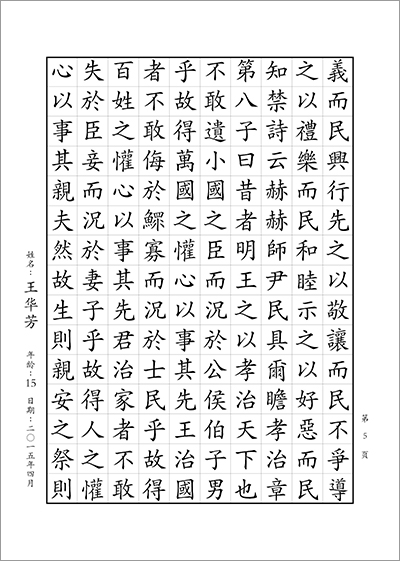 第 5 页
義而民興行先之以敬讓而民不爭導
之以禮樂而民和睦示之以好惡而民
知禁詩云赫赫師尹民具爾瞻孝治章
第八子曰昔者明王之以孝治天下也
不敢遺小國之臣而況於公侯伯子男
乎故得萬國之懽心以事其先王治國
者不敢侮於鰥寡而況於士民乎故得
百姓之懽心以事其先君治家者不敢
失於臣妾而況於妻子乎故得人之懽
心以事其親夫然故生則親安之祭則
姓名：王华芳 年龄：15 日期：二〇一五年四月